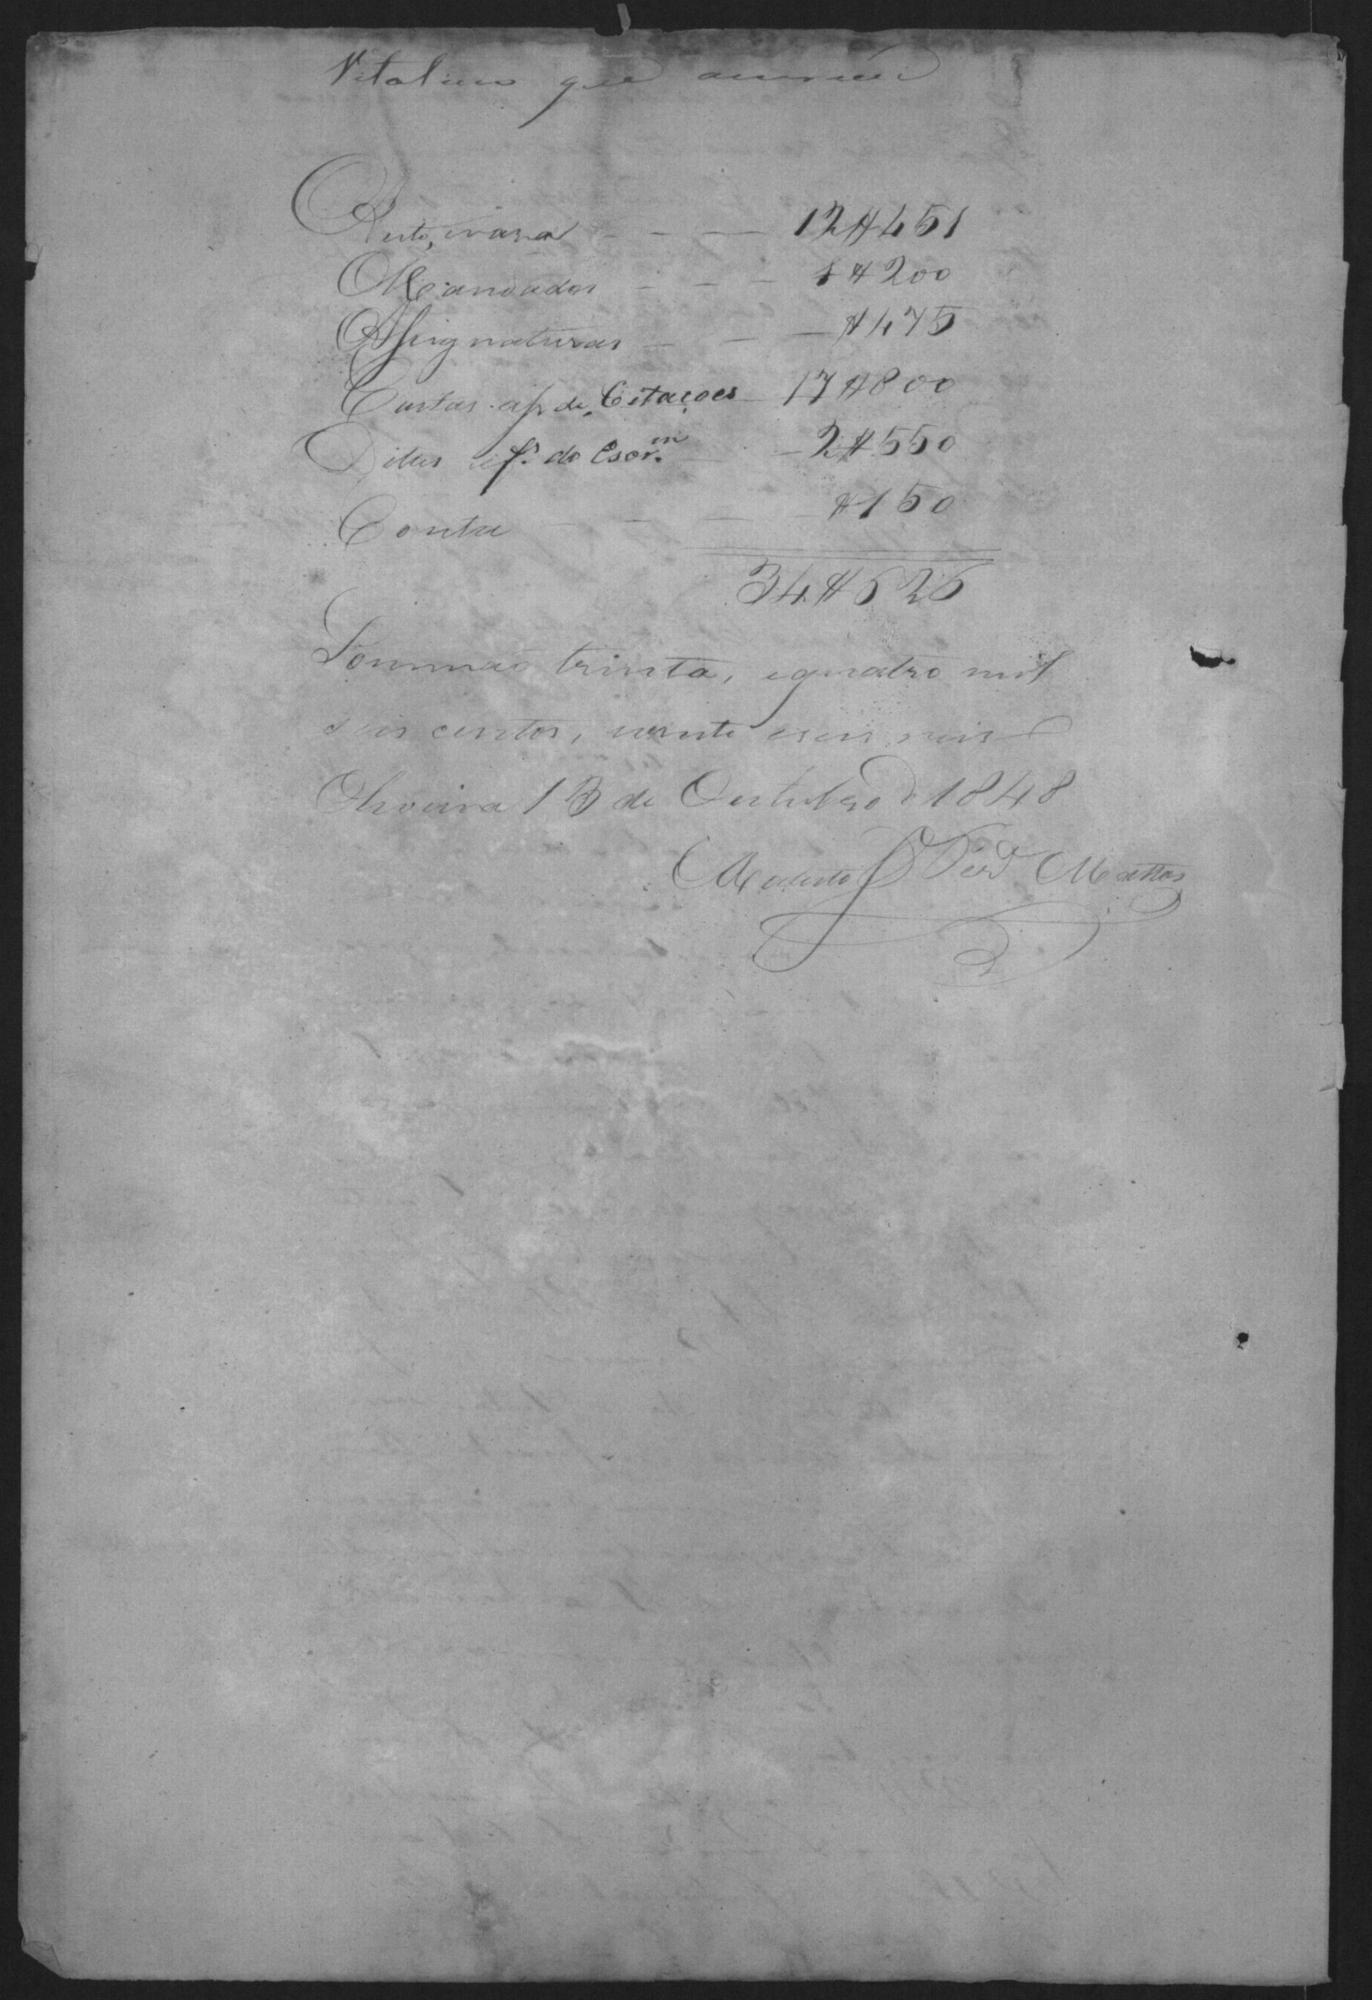 Vitalino que
Auto, evara - - - 12$451
Mandados - - - 1$200
Assignaturas - - - $475
Custas afs. de Citaçoes - 17$800
Ditas afs. do Escr.m - 2$550
Conta - - - $150
34$626
Somma trinta, equatro mil
seis centos, evinte eseis reis
Oliveira 13 de Outubro d 1848
Modesto Mattos